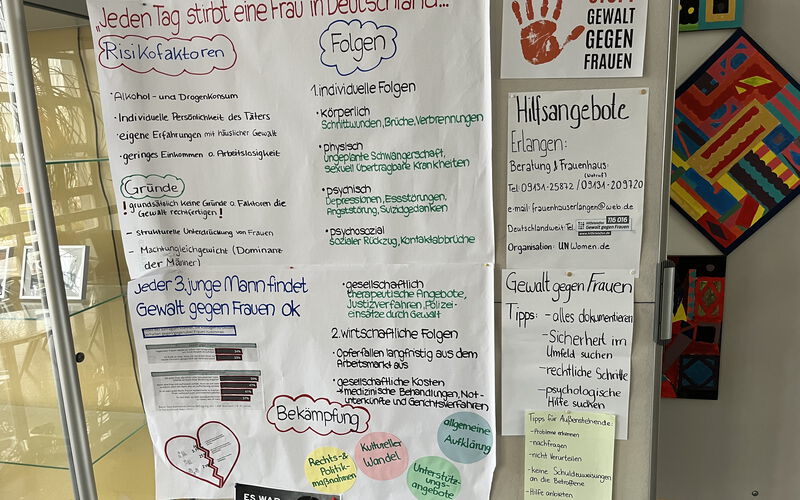 "Jeden Tag stirbt eine Frau in Deutschland..."
Risikofaktoren
• Alkohol- und Drogenkonsum
• Individuelle Persönlichkeit des Täters
• eigene Erfahrungen mit häuslicher Gewalt
• geringes Einkommen o. Arbeitslosigkeit
Gründe
! grundsätzlich keine Gründe o. Faktoren die
Gewalt rechtfertigen!
- strukturelle Unterdrückung von Frauen
- Machtungleichgewicht (Dominanz
der Männer)
Folgen
1. individuelle Folgen
• körperlich
Schnittwunden, Brüche, Verbrennungen
• physisch
ungeplante Schwangerschaft,
sexuell übertragbare Krankheiten
• psychisch
Depressionen, Essstörungen,
Angststörung, Suizidgedanken
• psychosozial
sozialer Rückzug, Kontaktabbrüche
Jeder 3. junge Mann findet
Gewalt gegen Frauen ok
• gesellschaftlich
therapeutische Angebote,
Justizverfahren, Polizei-
einsätze durch Gewalt
2. wirtschaftliche Folgen
• Opfer fallen langfristig aus dem
Arbeitsmarkt aus
• gesellschaftliche Kosten
→ medizinische Behandlungen, Not-
unterkünfte und Gerichtsverfahren
Bekämpfung
Rechts- &
Politik-
maßnahmen
Kultureller
Wandel
Unterstütz-
ungs-
angebote
allgemeine
Aufklärung
ES WAR
GEWALT
GEGEN
FRAUEN
Hilfsangebote
Erlangen:
Beratung & Frauenhaus:
(Notruf)
Tel: 09131-25872 / 09131-209720
e-mail: frauenhauserlangen@web.de
Deutschlandweit: Tel.
116 016
Gewalt gegen Frauen
Organisation: UN Women.de
Gewalt gegen Frauen
Tipps: - alles dokumentieren
- Sicherheit im
Umfeld suchen
- rechtliche Schritte
- psychologische
Hilfe suchen
Tipps für Außenstehende:
- Probleme erkennen
- nachfragen
- nicht Verurteilen
- keine Schuldzuweisungen
an die Betroffene
- Hilfe anbieten